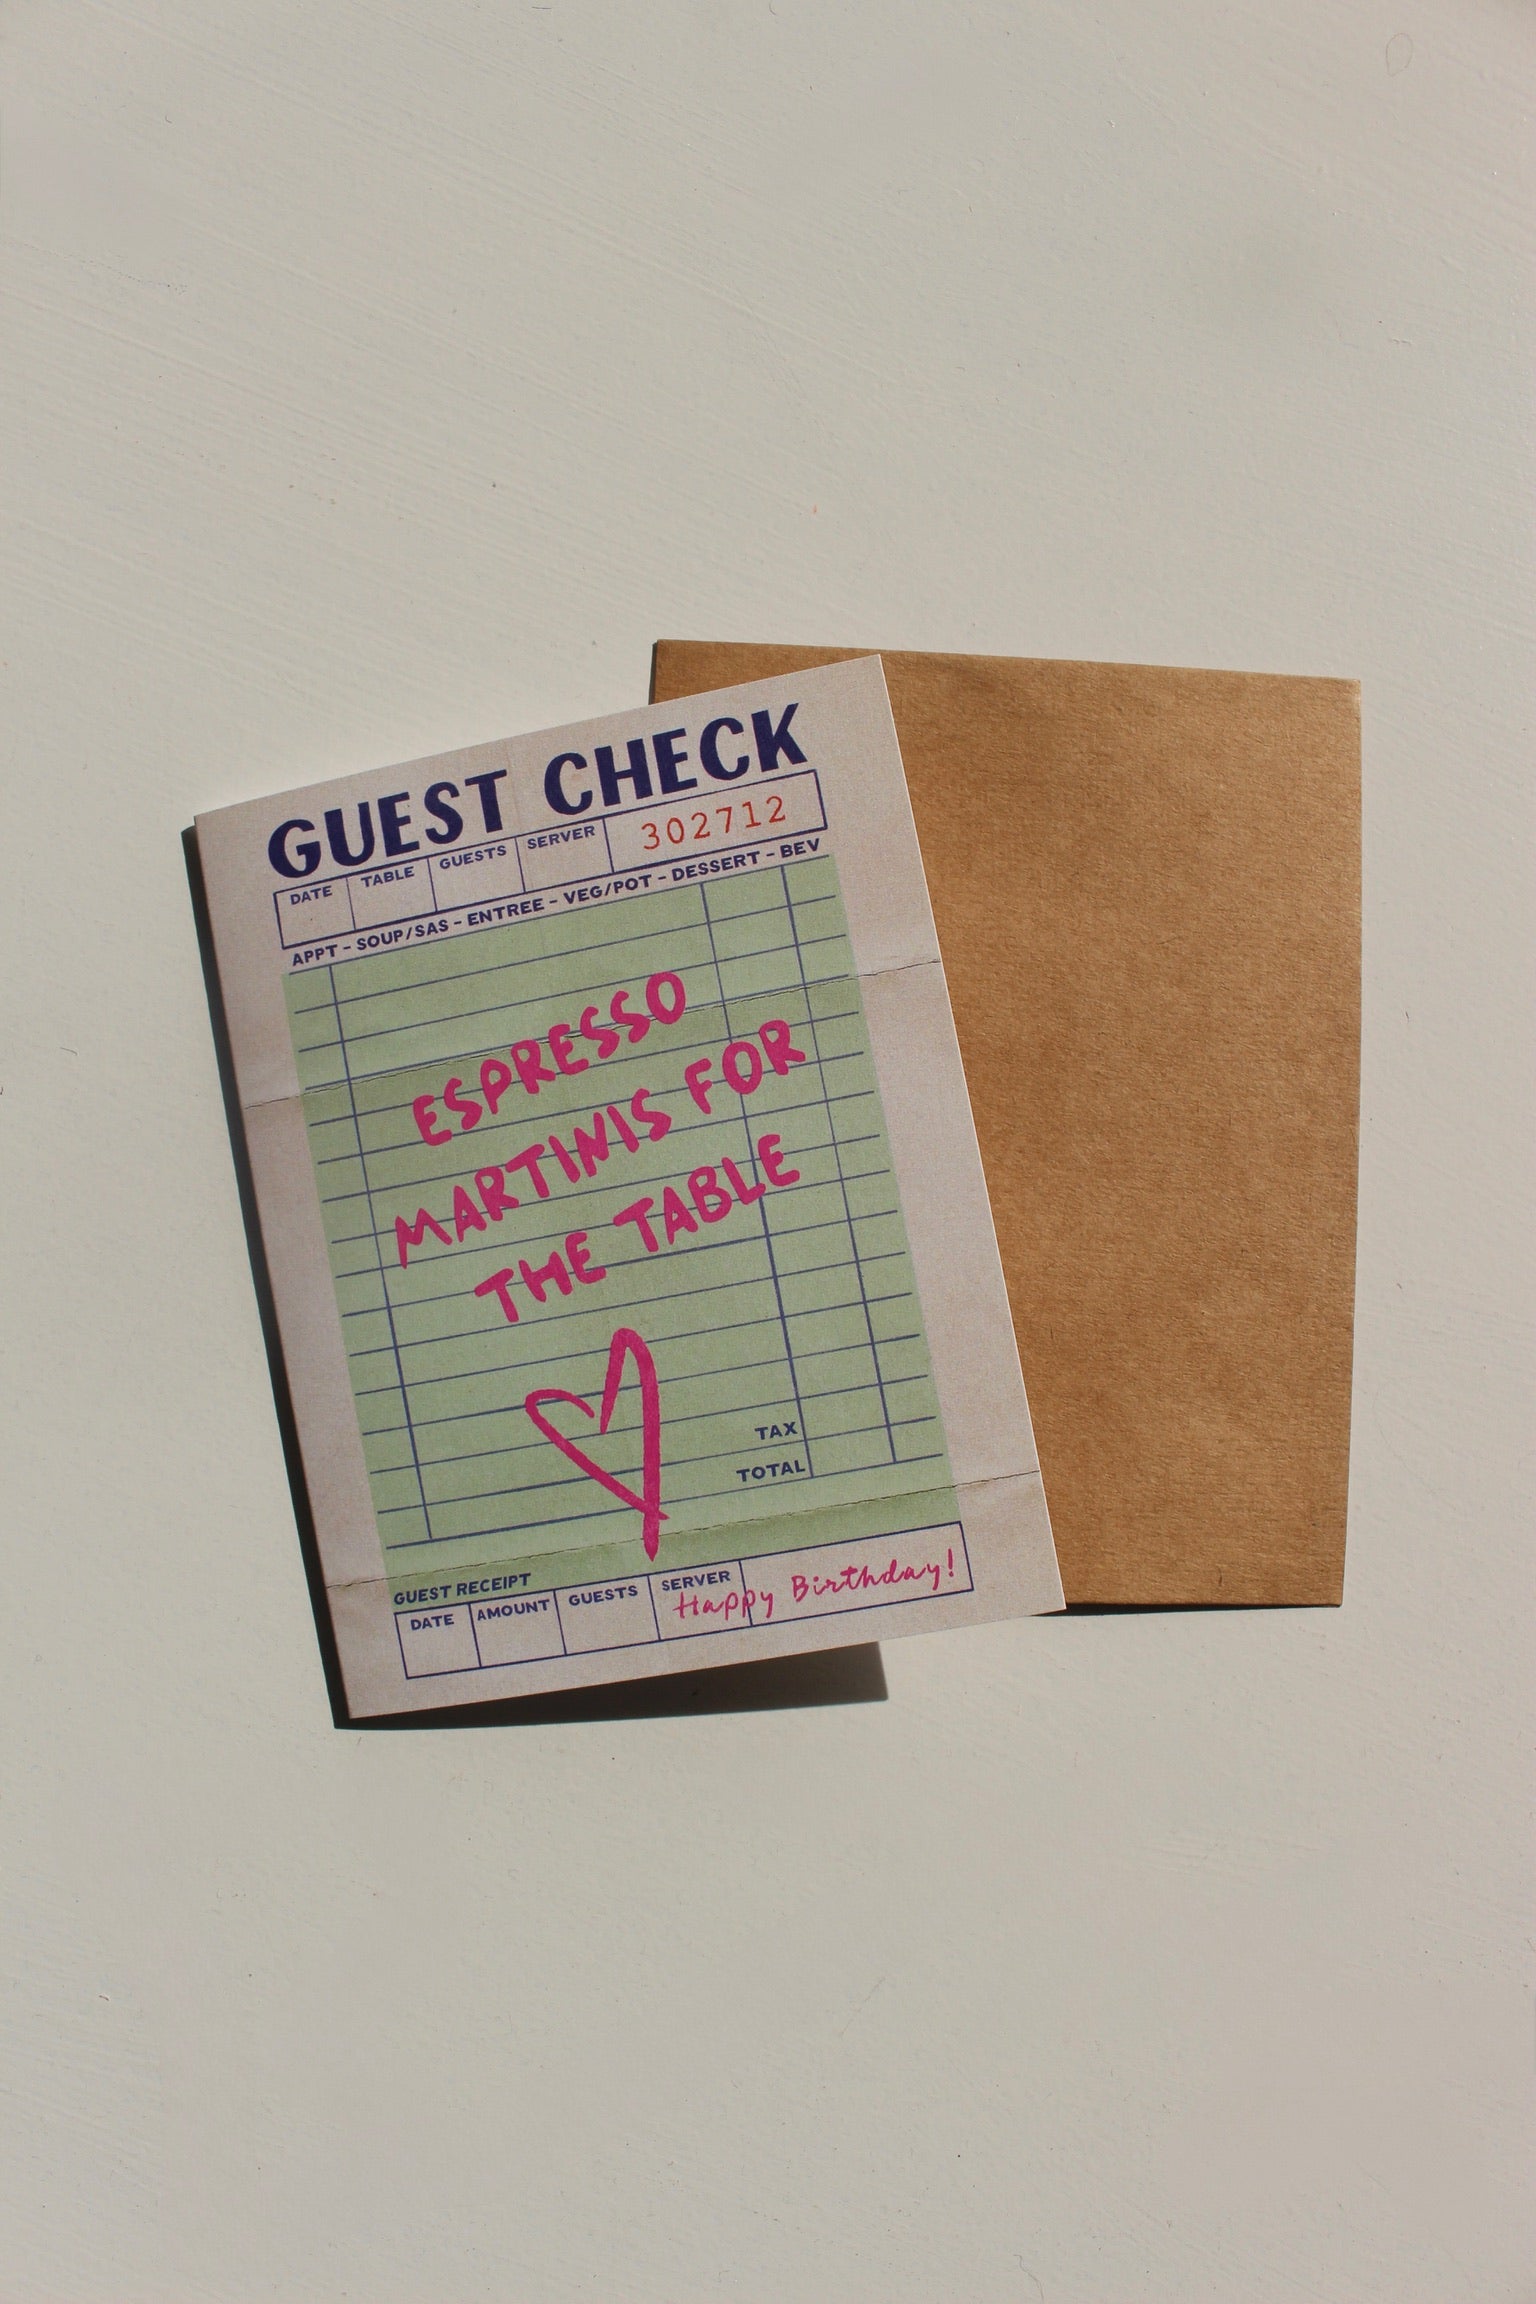 GUEST CHECK
DATE TABLE GUESTS SERVER 302712
APPT - SOUP/SAS - ENTREE - VEG/POT - DESSERT - BEV
ESPRESSO
MARTINIS FOR
THE TABLE
TAX
TOTAL
GUEST RECEIPT
DATE AMOUNT GUESTS SERVER
Happy Birthday!